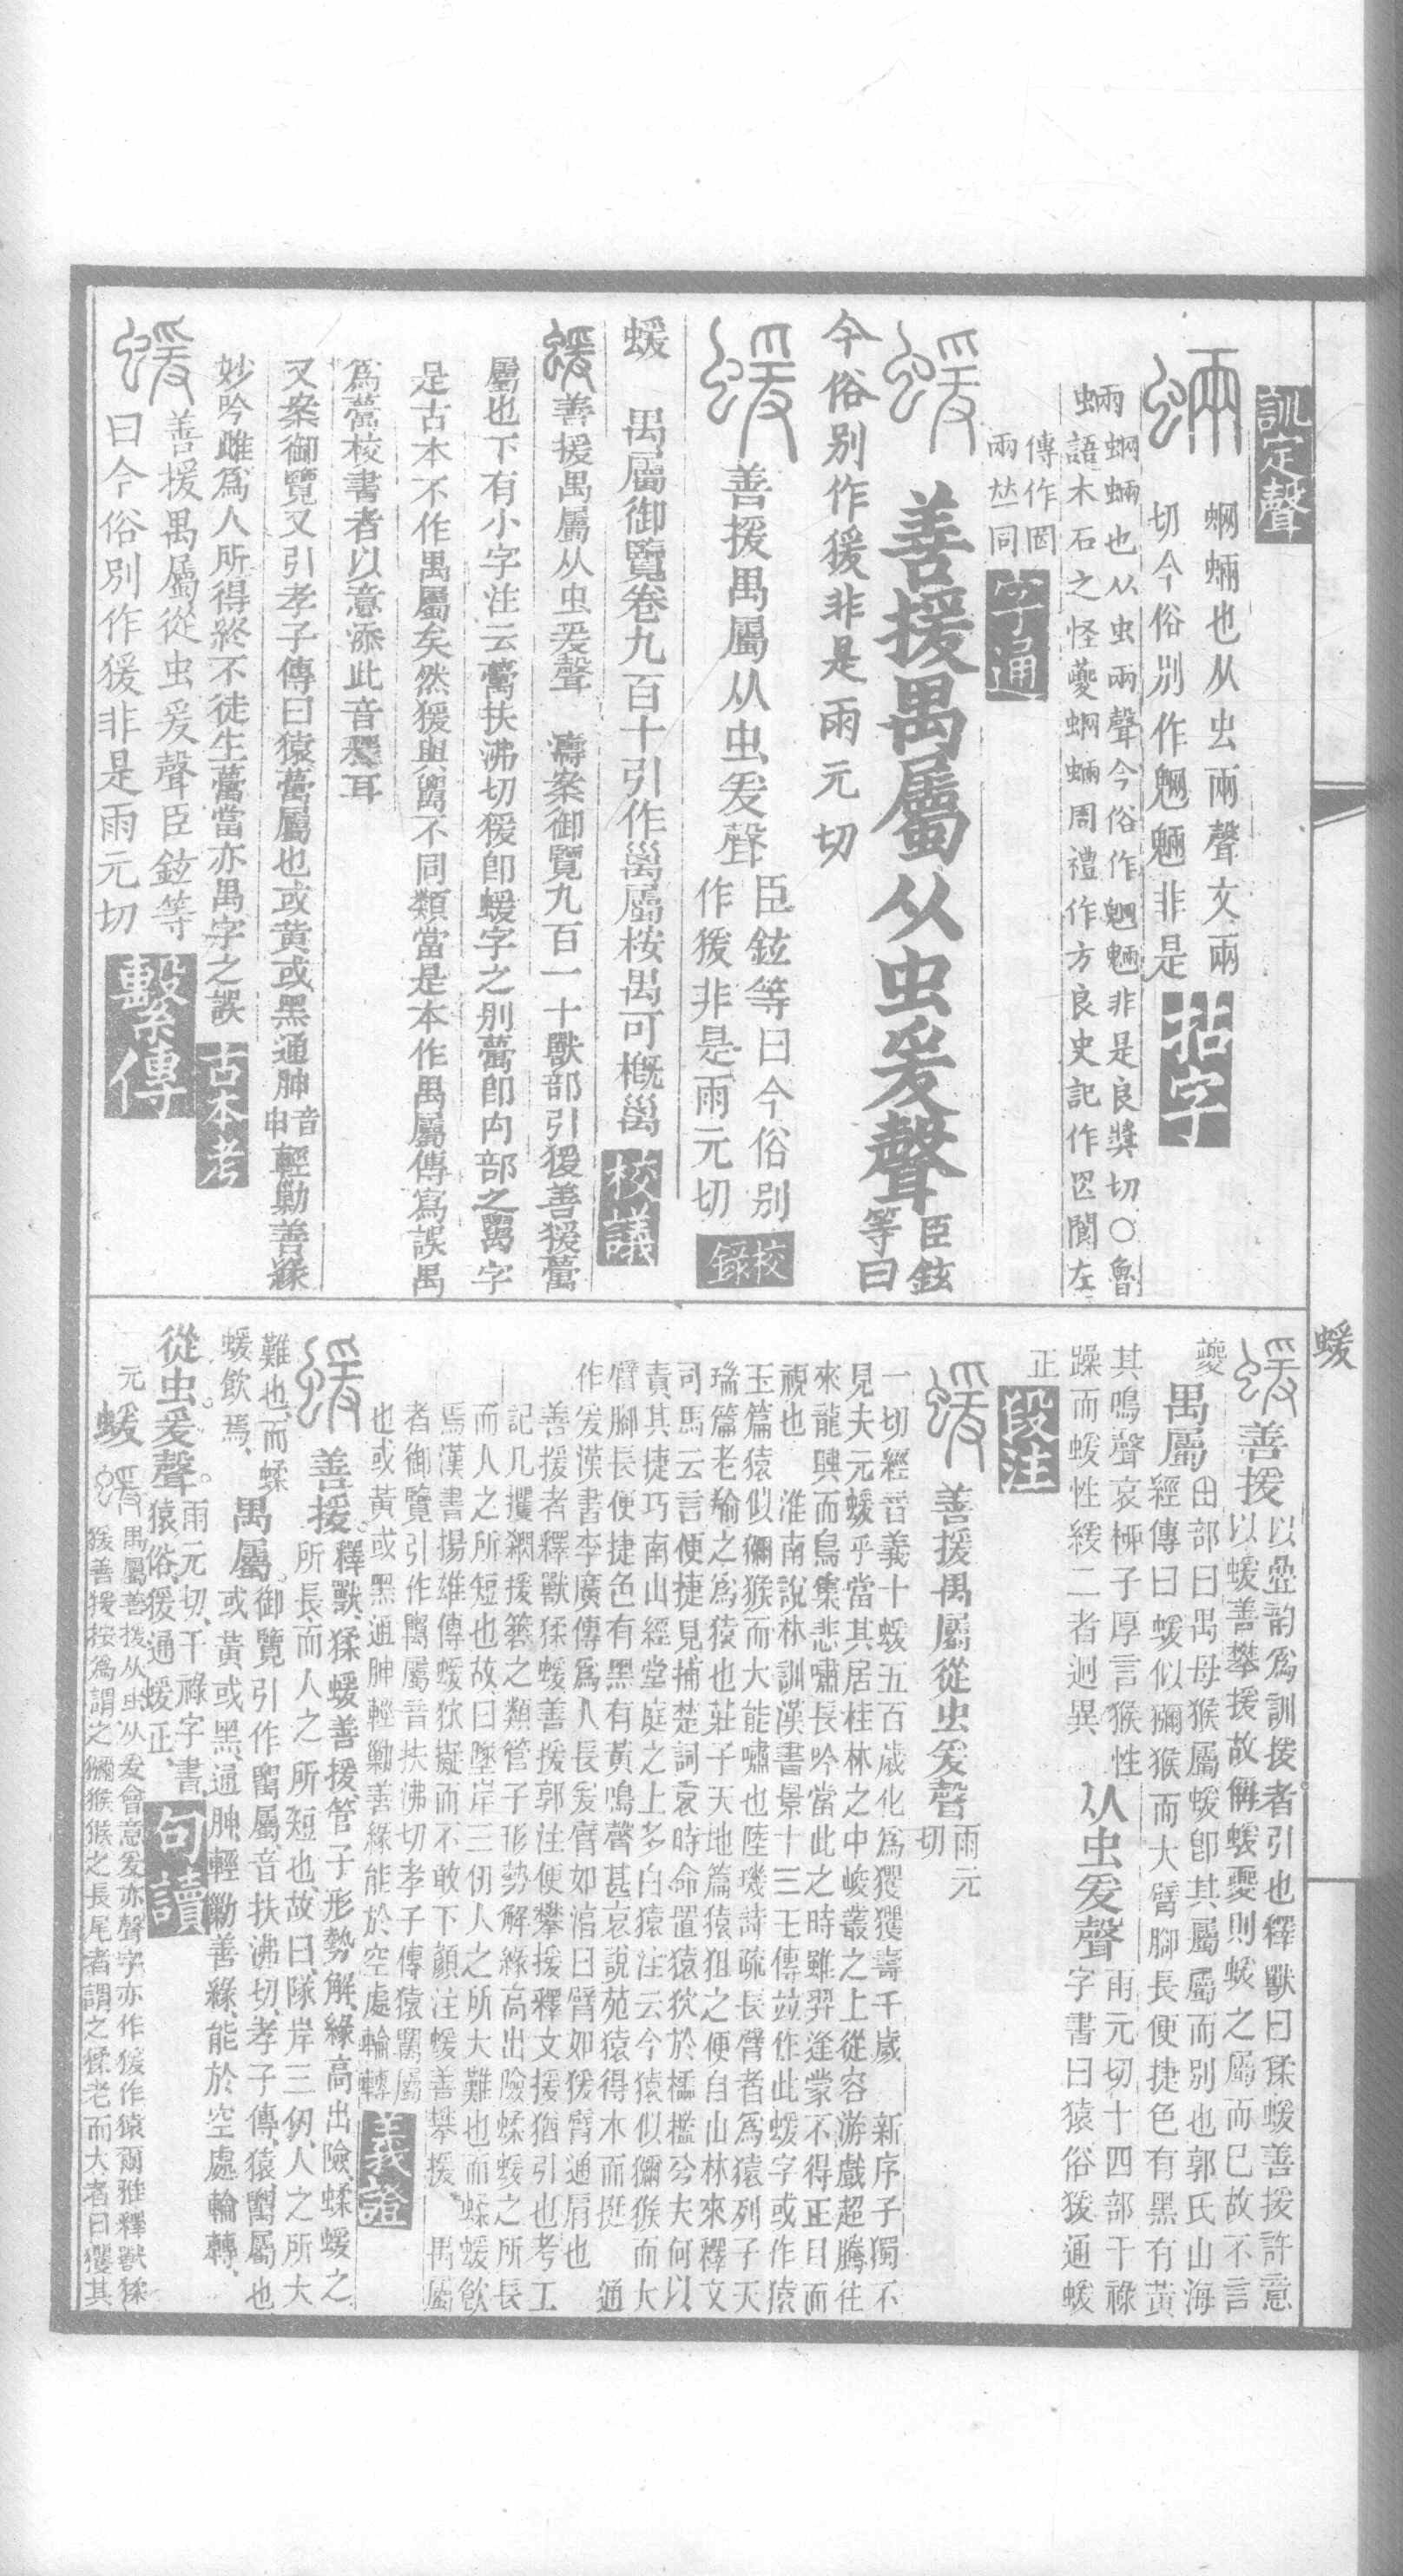 訓定聲
蛧蜽也从虫兩聲文兩
切今俗別作魍魎非是
拈字
蜽蛧蜽也从虫兩聲今俗作魍魎非是良獎切○魯
語木石之怪夔蛧蜽周禮作方良史記作罔閬左
傳作罔
兩𠀤同
字通
善援禺屬从虫爰聲
臣鉉
等曰
今俗別作猨非是雨元切
善援禺屬从虫爰聲
臣鉉等曰今俗別
作猨非是雨元切
校錄
蝯　禺屬御覽卷九百十引作
屬桉禺可概
校議
蝯善援禺屬从虫爰聲　濤案御覽九百一十獸部引猨善猨
屬也下有小字注云
扶沸切猨卽蝯字之別
卽内部之
字
是古本不作禺屬矣然猨與
不同類當是本作禺屬傳寫誤禺
爲
校書者以意添此音釋耳
又案御覽又引孝子傳曰猿
屬也或黄或黑通胂
音申
輕勦善緣
妙吟雌爲人所得終不徒生
當亦禺字之誤
古本考
善援禺屬從虫爰聲臣鉉等
曰今俗別作猨非是雨元切
繫傳
蝯
善援
以疊韵爲訓援者引也釋獸曰猱蝯善援許意
以蝯善攀援故偁蝯夔則蝯之屬而巳故不言
夔
禺屬
田部曰禺母猴屬蝯卽其屬屬而別也郭氏山海
經傳曰蝯似獼猴而大臂腳長便捷色有黑有黃
其鳴聲哀柳子厚言猴性
躁而蝯性緩二者迥異
从虫爰聲
雨元切十四部干祿
字書曰猿俗猨通蝯
正
段注
善援禺屬從虫爰聲
雨元
切
一切經音義十蝯五百歲化爲玃玃壽千歲　新序子獨不
見夫元蝯乎當其居桂林之中峻叢之上從容游戲超騰往
來龍興而鳥集悲嘯長吟當此之時雖羿逢蒙不得正目而
視也　淮南說林訓漢書景十三王傳竝作此蝯字或作猿
玉篇猿似獼猴而大能嘯也陸璣詩疏長臂者爲猿列子天
瑞篇老羭之爲猿也莊子天地篇猿狙之便自山林來釋文
司馬云言便捷見捕楚詞哀時命置猿狖於櫺檻兮夫何以
責其捷巧南山經堂庭之上多白猿注云今猿似獼猴而大
臂腳長便捷色有黑有黃鳴聲甚哀說苑猿得木而挺　通
作爰漢書李廣傳爲人長爰臂如淳曰臂如猨臂通肩也
善援者釋獸猱蝯善援郭注便攀援釋文援猶引也考工
記凡攫閷援簭之類管子形勢解緣高出險蝚蝯之所長
而人之所短也故曰墜岸三仞人之所大難也而蝚蝯飲
焉漢書揚雄傳蝯狖擬而不敢下顏注蝯善攀援　禺屬
者御覽引作
屬音扶沸切孝子傳猿
屬
也或黃或黑通胂輕勦善緣能於空處輪轉
義證
善援
釋獸猱蝯善援管子形勢解緣高出險蝚蝯之
所長而人之所短也故曰隊岸三仞人之所大
難也而蝚
蝯飲焉
禺屬
御覽引作
屬音扶沸切孝子傳猿
屬也
或黃或黑通胂輕勦善緣能於空處輪轉
從虫爰聲
雨元切干祿字書
猿俗猨通蝯正
句讀
元
蝯
禺屬善援从虫从爰會意爰亦聲字亦作猨作猿爾雅釋獸猱
猨善援按爲謂之獼猴猴之長尾者謂之猱老而大者曰玃其
蝯